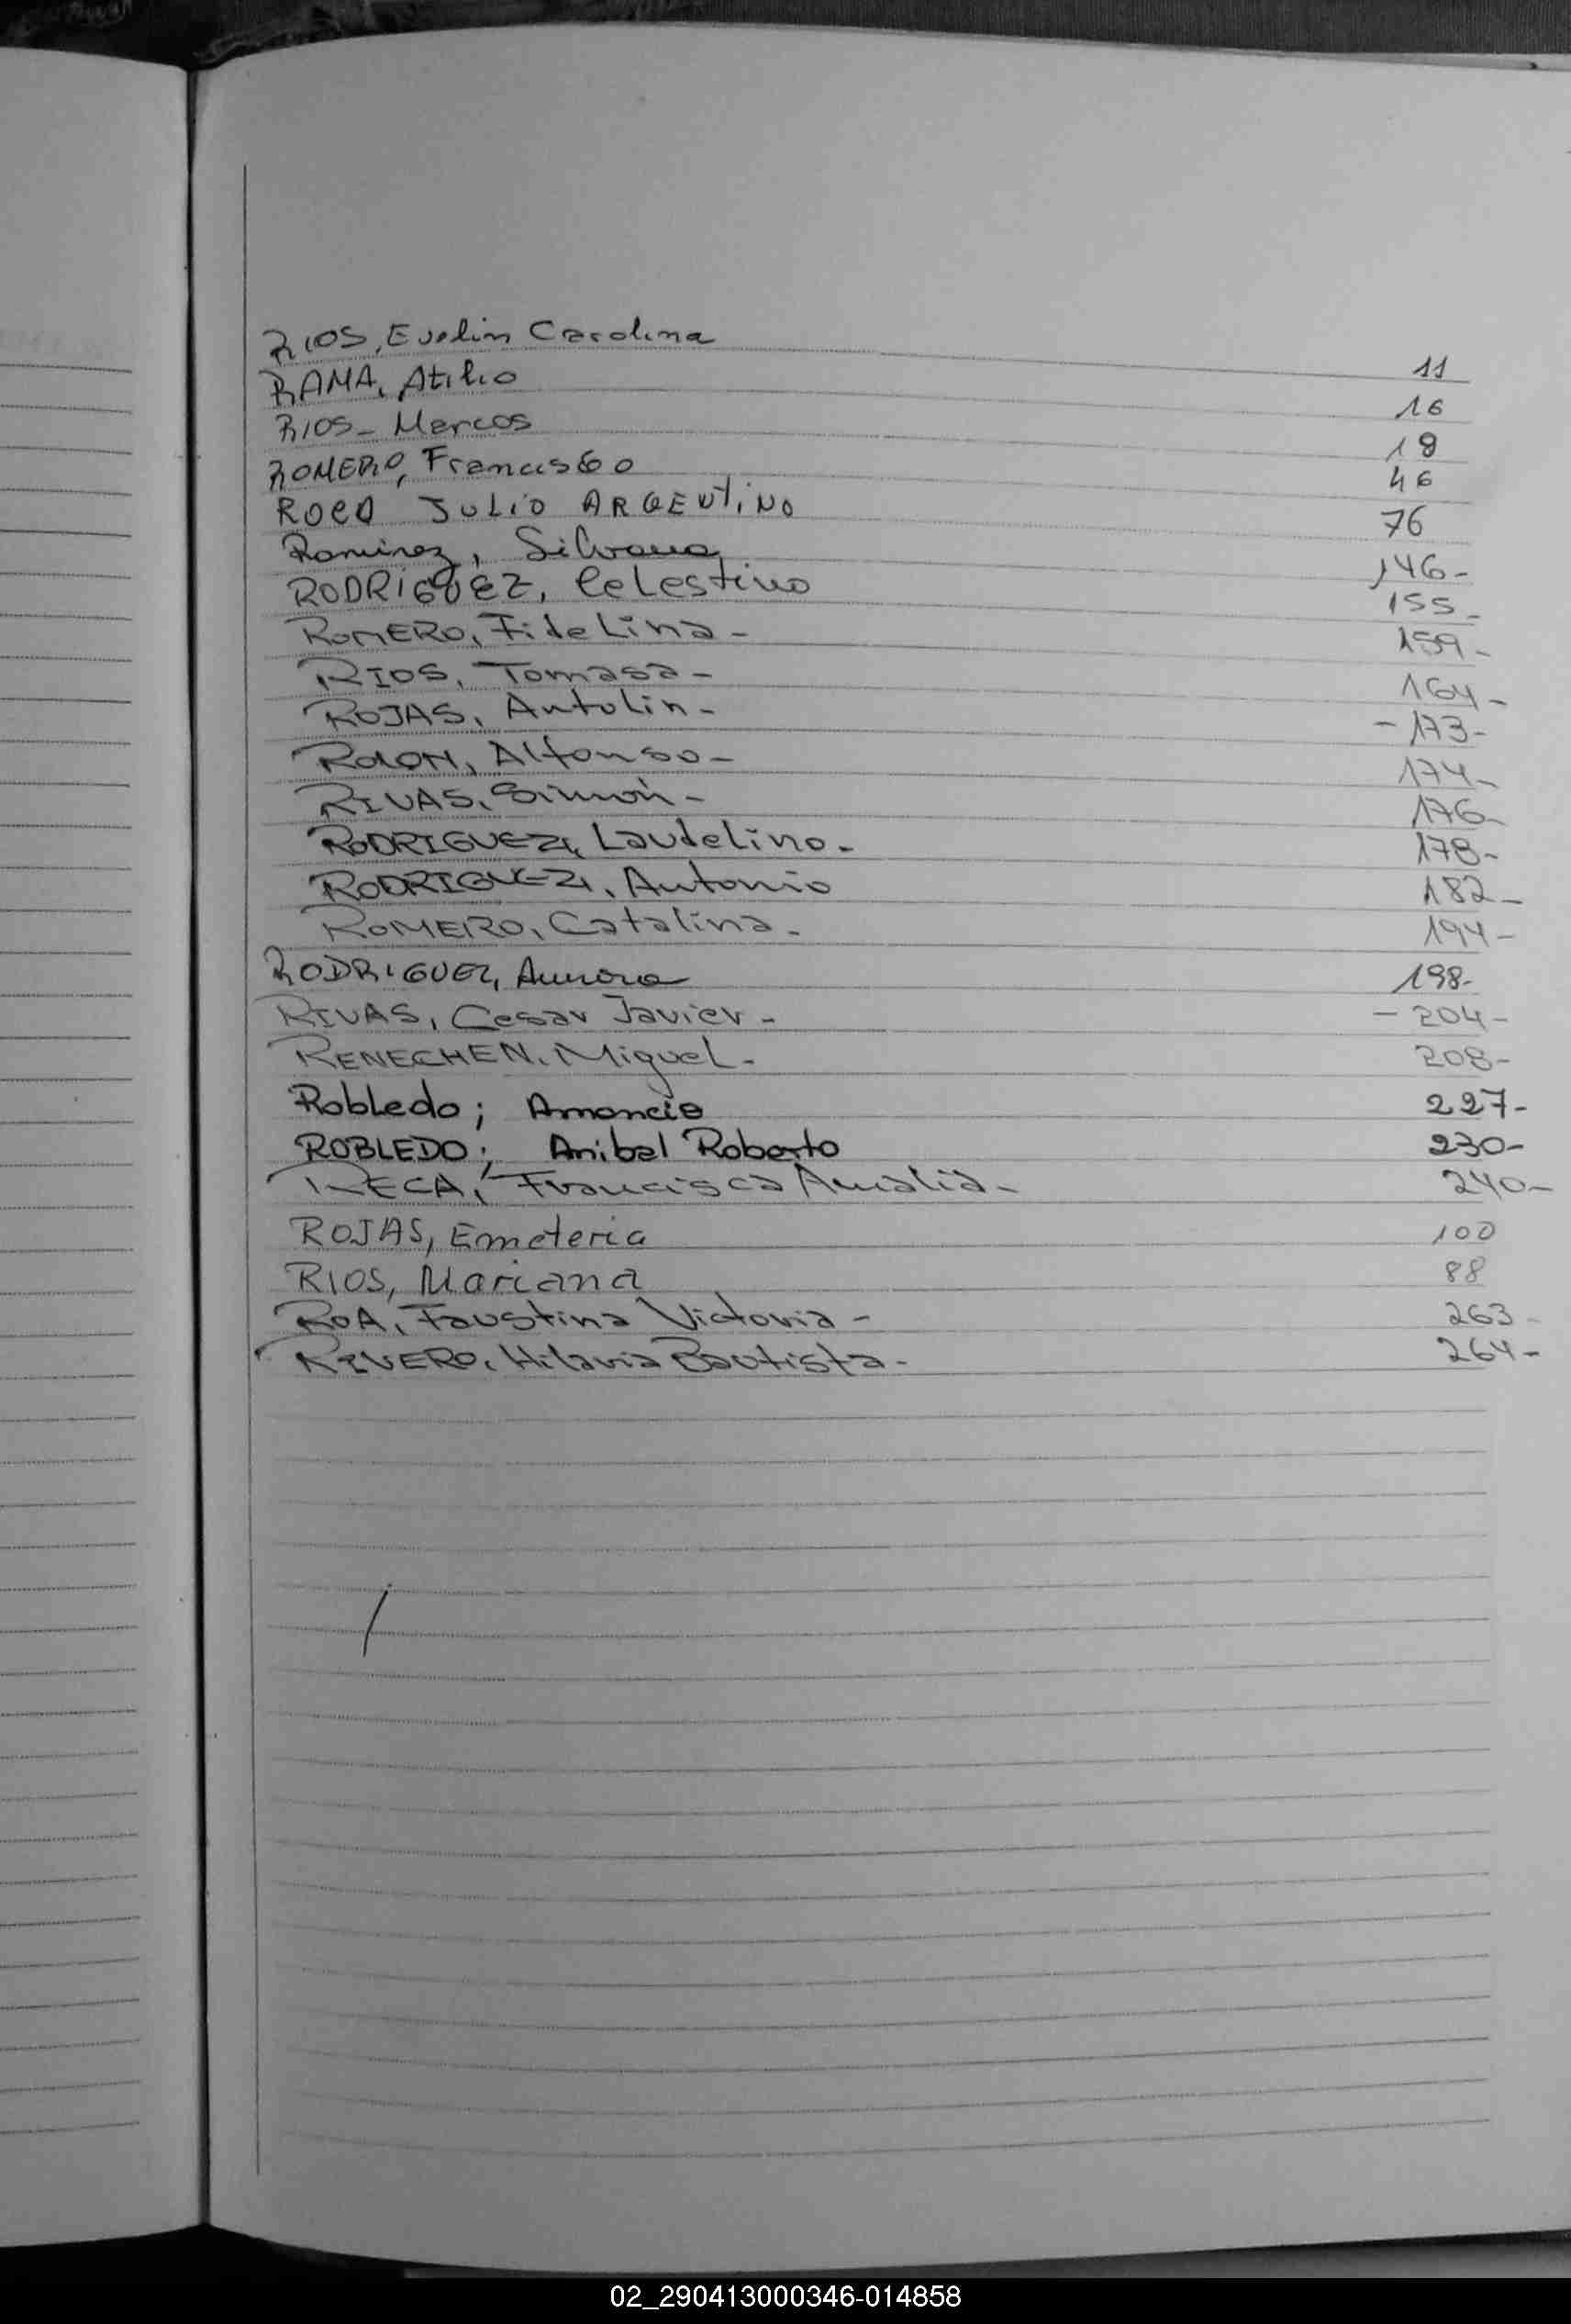 RIOS, Evelin Carolina 11
RAMA, Atilio 16
RIOS - Marcos 19
ROMERO, Francisco 46
ROCA JULIO ARGENTINO 76
Ramirez, Silvana 146-
RODRIGUEZ, Celestino 155-
ROMERO, Fidelina - 159-
RIOS, Tomasa - 164-
ROJAS, Antolin - - 173-
ROLON, Alfonso - 174-
RIVAS, Simón - 176-
RODRIGUEZ, Laudelino. 178-
RODRIGUEZ, Antonio 182-
ROMERO, Catalina. 194-
RODRIGUEZ, Aurora 198-
RIVAS, Cesar Javier - - 204-
RENECHEN, Miguel - 208-
Robledo; Amancio 227-
ROBLEDO; Anibal Roberto 230-
RECA, Francisca Amalia - 240-
ROJAS, Emeteria 100
RIOS, Mariana 88
ROA, Faustina Victoria - 263-
RIVERO, Hilaria Bautista - 264-
02_290413000346-014858